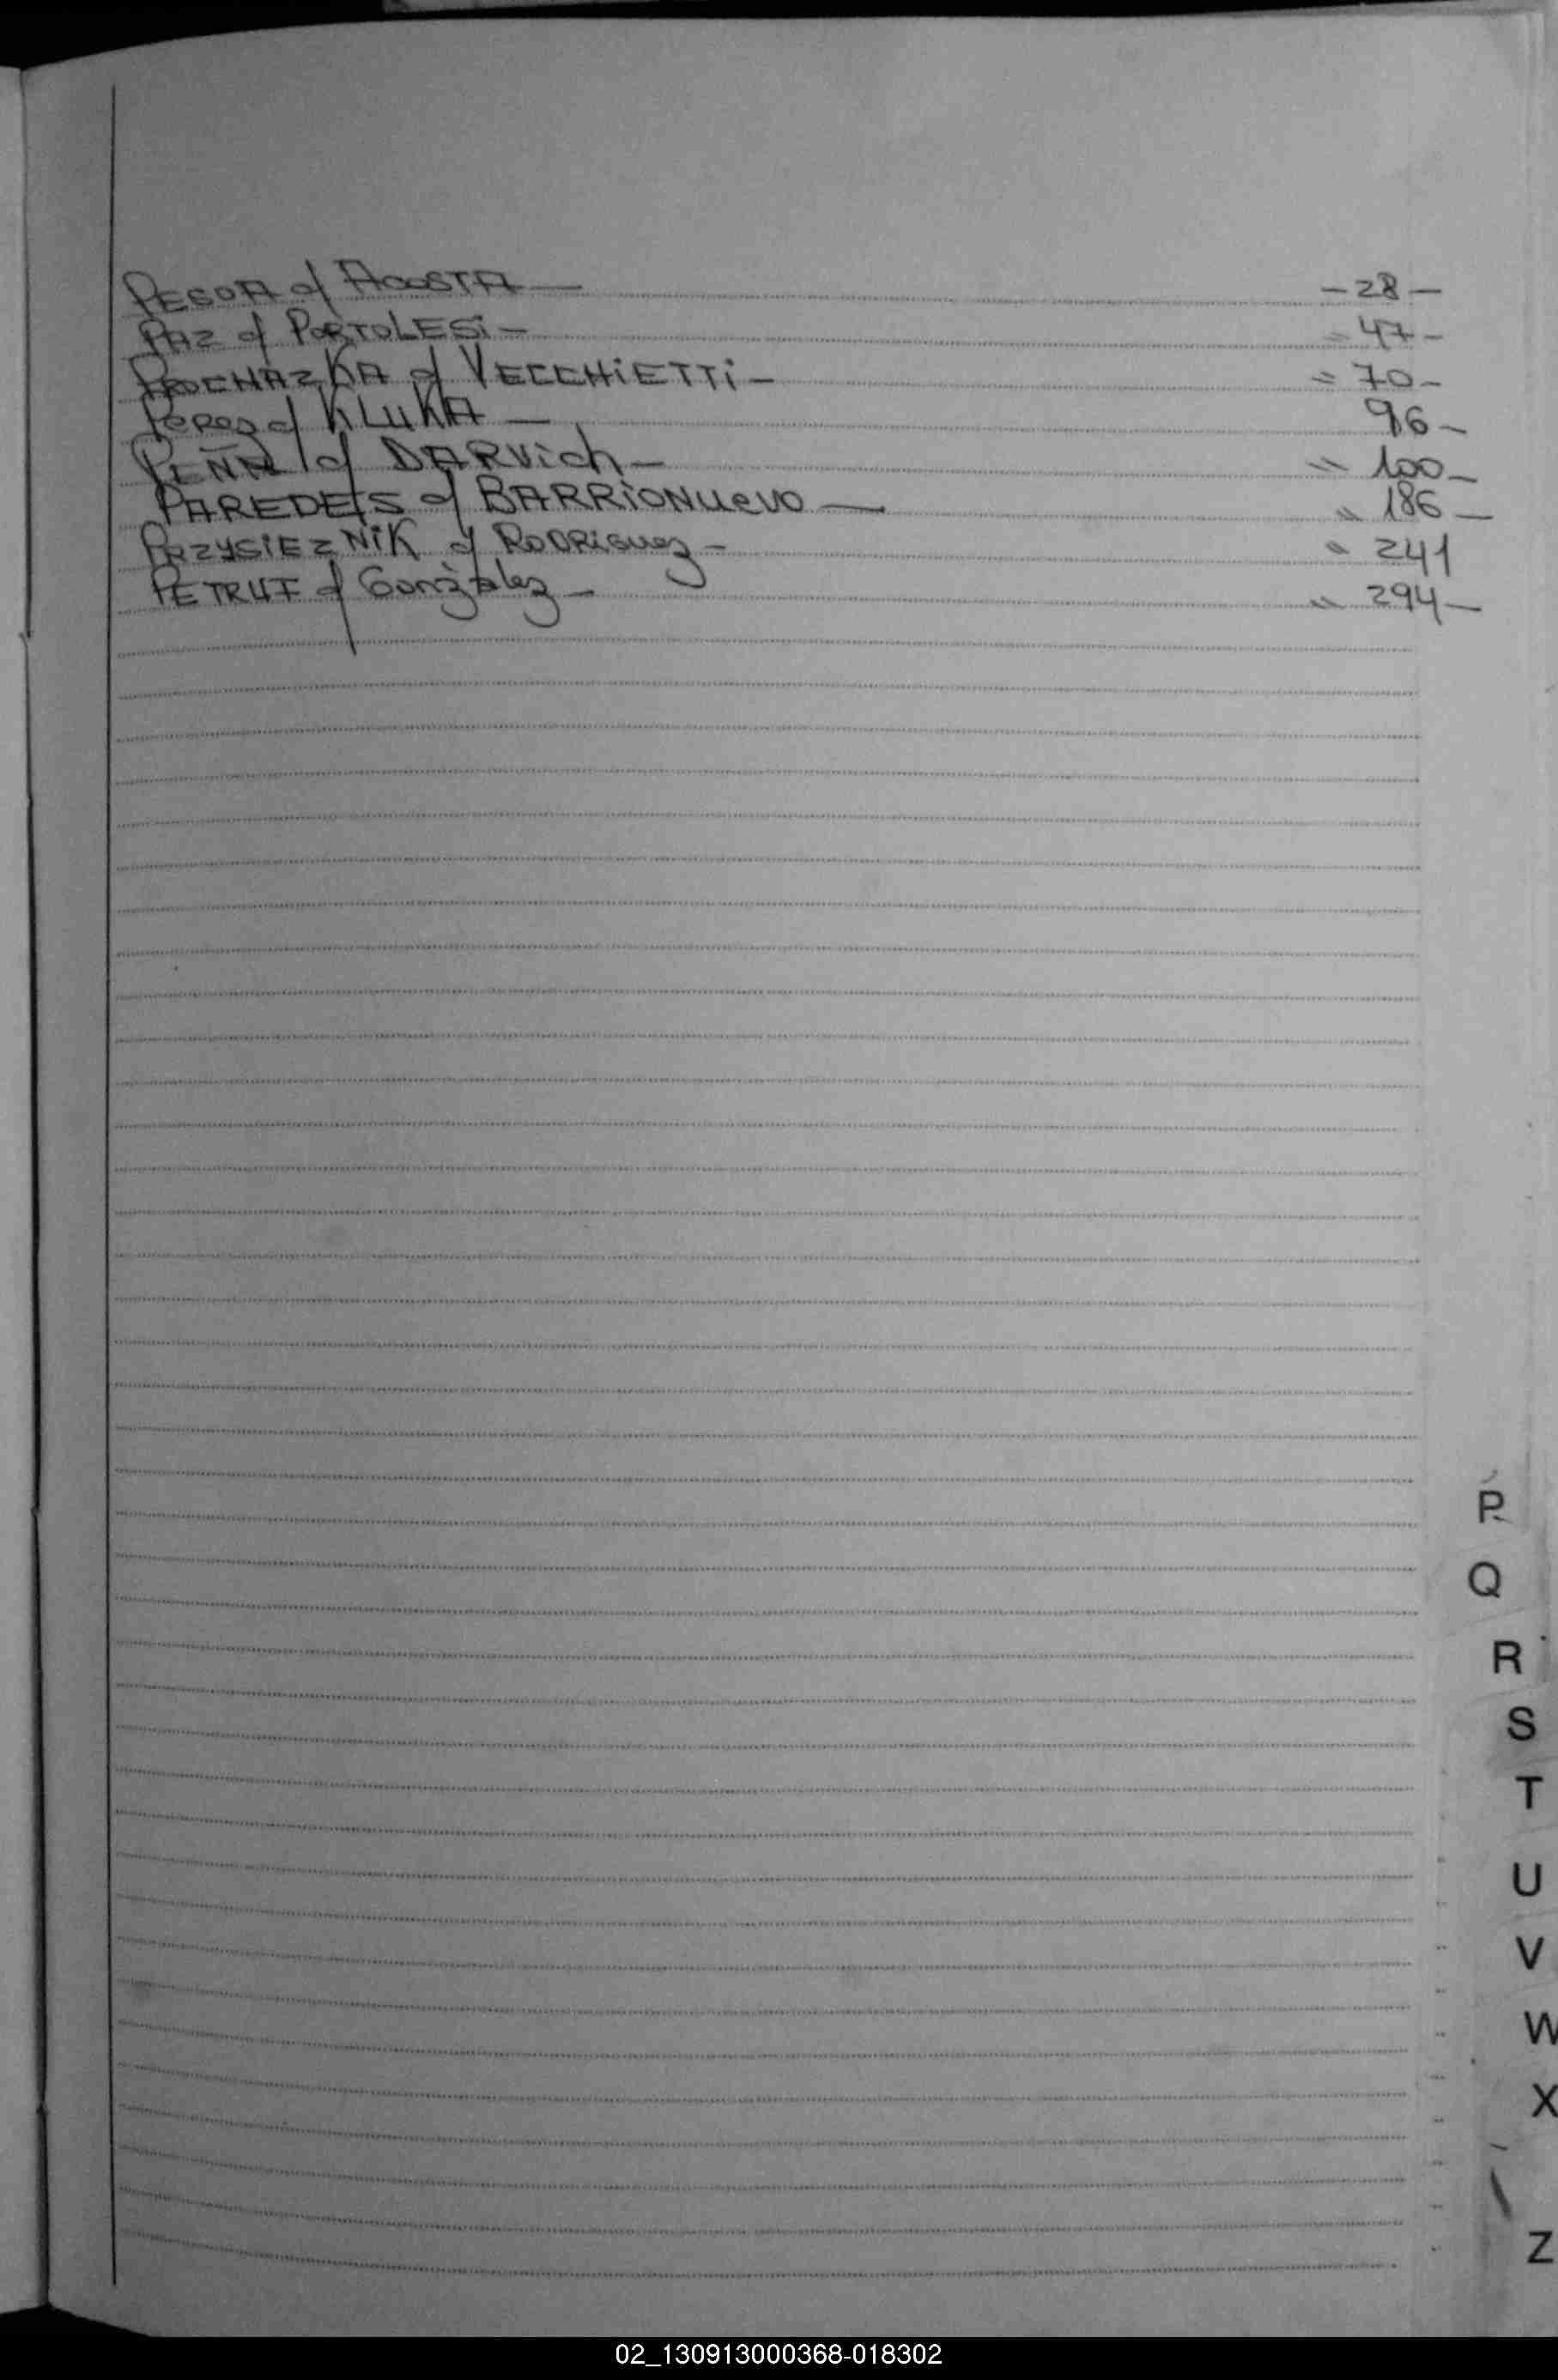 PESOA c/ ACOSTA — - 28 -
PAZ c/ PORTOLESi - " 47 -
PROCHAZKA c/ VECCHiETTi - " 70 -
Perez c/ KLUKA — 96 -
PEÑA c/ DARVich - " 100 -
PAREDES c/ BARRiONuevo — " 186 -
PRZYSiEZNiK c/ RODRiguez - " 241
PETRUF c/ Gonzàlez - " 294 -
P
Q
R
S
T
U
V
W
X
Z
02_130913000368-018302